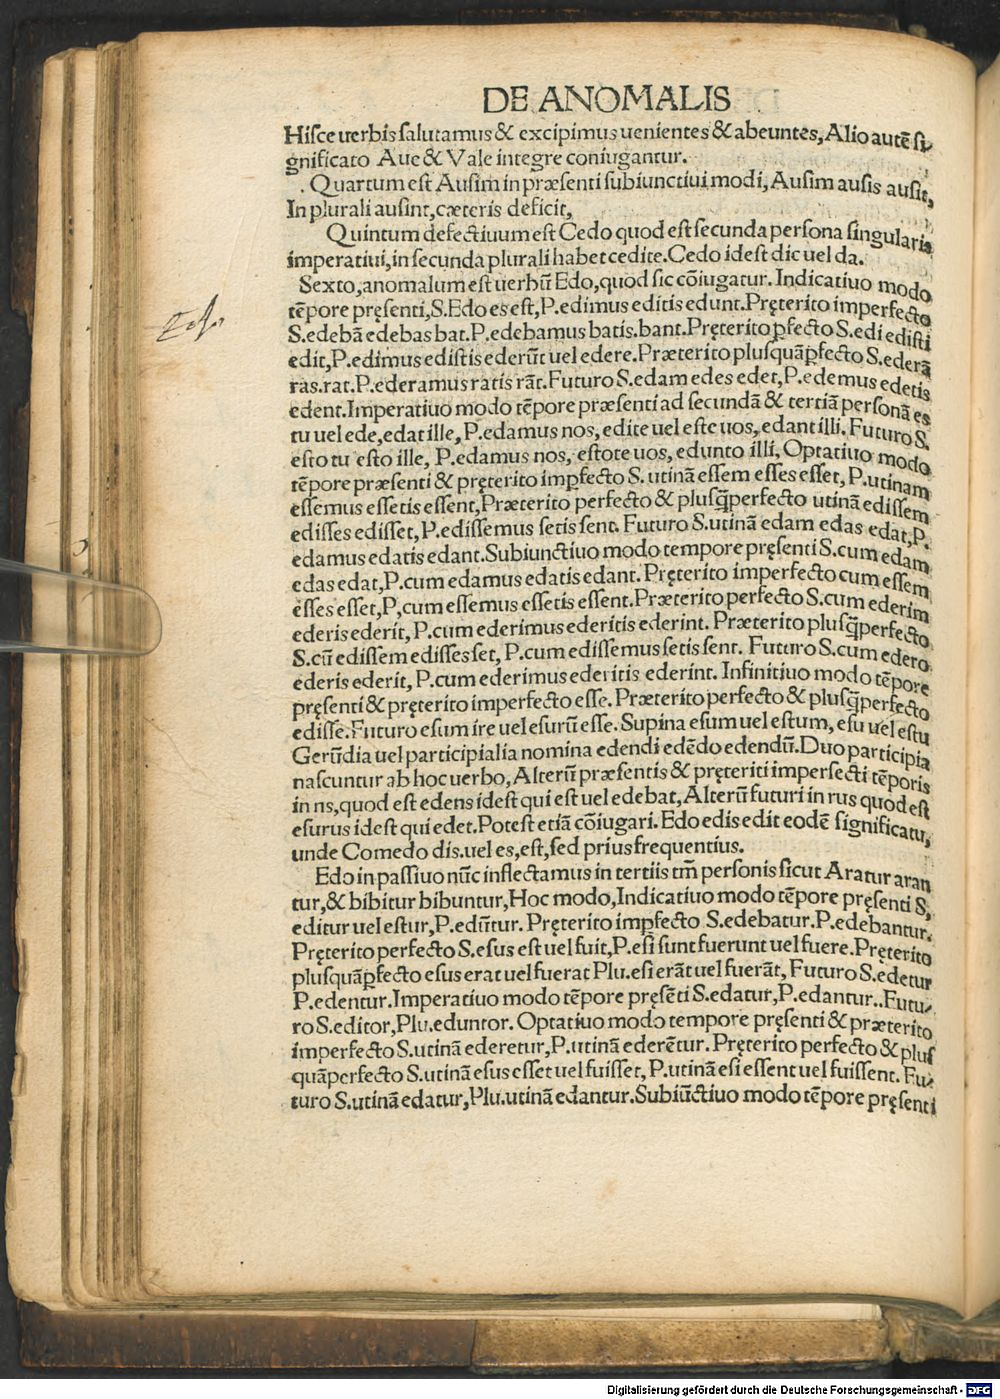 DE ANOMALIS
Hisce uerbis salutamus & excipimus uenientes & abeuntes, Alio autē si-
gnificato Aue & Vale integre coniugantur.
. Quartum est Ausim in præsenti subiunctiui modi, Ausim ausis ausit,
In plurali ausint, cæteris deficit,
Quintum defectiuum est Cedo quod est secunda persona singularis
imperatiui, in secunda plurali habet cedite. Cedo idest dic uel da.
Sexto, anomalum est uerbū Edo, quod sic cōiugatur. Indicatiuo modo
tēpore pręsenti, S. Edo es est, P. edimus editis edunt. Pręterito imperfecto
S. edebā edebas bat. P. edebamus batis. bant. Pręterito ꝑfecto S. edi edisti
edit, P. edimus edistis ederūt uel edere. Præterito plusquāꝑfecto S. ederā
ras. rat. P. ederamus ratis rāt. Futuro S. edam edes edet, P. edemus edetis
edent. Imperatiuo modo tēpore præsenti ad secundā & tertiā personā es
tu uel ede, edat ille, P. edamus nos, edite uel este uos, edant illi. Futuro S.
esto tu esto ille, P. edamus nos, estote uos, edunto illi, Optatiuo modo
tēpore præsenti & pręterito imꝑfecto S. utinā essem esses esset, P. utinam
essemus essetis essent, Præterito perfecto & plusq̄perfecto utinā edissem
edisses edisset, P. edissemus setis sent. Futuro S. utinā edam edas edat, P.
edamus edatis edant. Subiunctiuo modo tempore pręsenti S. cum edam
edas edat, P. cum edamus edatis edant. Pręterito imperfecto cum essem
esses esset, P, cum essemus essetis essent. Præterito perfecto S. cum ederim
ederis ederit, P. cum ederimus ederitis ederint. Præterito plusq̄perfecto
S. cū edissem edisses set, P. cum edissemus setis sent. Futuro S. cum edero
ederis ederit, P. cum ederimus ederitis ederint. Infinitiuo modo tēpore
pręsenti & pręterito imperfecto esse. Præterito perfecto & plusq̄perfecto
edisse. Futuro esum ire uel esurū esse. Supina esum uel estum, esu uel estu
Gerūdia uel participialia nomina edendi edēdo edendū. Duo participia
nascuntur ab hoc uerbo, Alterū præsentis & pręteriti imperfecti tēporis
in ns, quod est edens idest qui est uel edebat, Alterū futuri in rus quod est
esurus idest qui edet. Potest etiā cōiugari. Edo edis edit eodē significatu,
unde Comedo dis. uel es, est, sed prius frequentius.
Edo in passiuo nūc inflectamus in tertiis tm̄ personis sicut Aratur aran
tur, & bibitur bibuntur, Hoc modo, Indicatiuo modo tēpore pręsenti S,
editur uel estur, P. edūtur. Pręterito imꝑfecto S. edebatur. P. edebantur.
Pręterito perfecto S. esus est uel fuit, P. esi sunt fuerunt uel fuere. Pręterito
plusquāꝑfecto esus erat uel fuerat Plu. esi erāt uel fuerāt, Futuro S. edetur
P. edentur. Imperatiuo modo tēpore pręsēti S. edatur, P. edantur.. Futu-
ro S. editor, Plu. eduntor. Optatiuo modo tempore pręsenti & præterito
imperfecto S. utinā ederetur, P. utinā ederētur. Pręterito perfecto & plus
quāperfecto S. utinā esus esset uel fuisset, P. utinā esi essent uel fuissent. Fu-
turo S. utinā edatur, Plu. utinā edantur. Subiūctiuo modo tēpore pręsenti
Digitalisierung gefördert durch die Deutsche Forschungsgemeinschaft - DFG